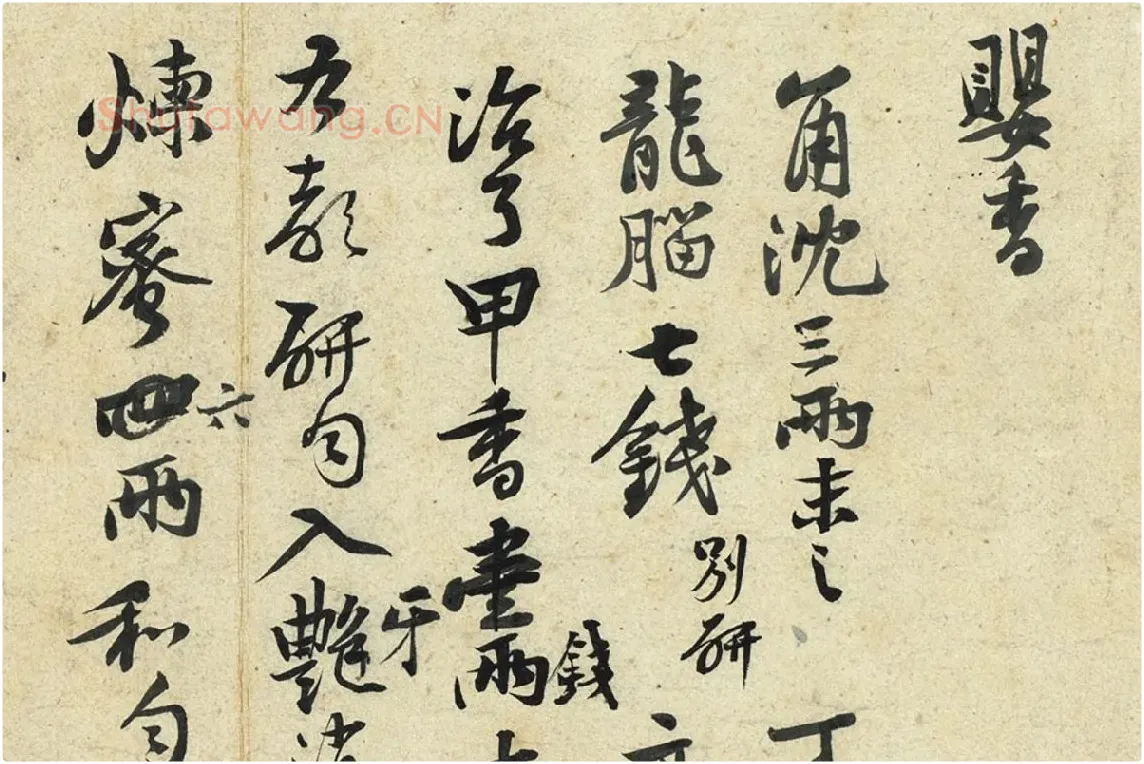 嬰香
角沈三兩末之 丁
龍腦七錢別研
治了甲香壹兩錢
右都研勻入艷牙
煉蜜四六兩和勻
Shufawang.CN